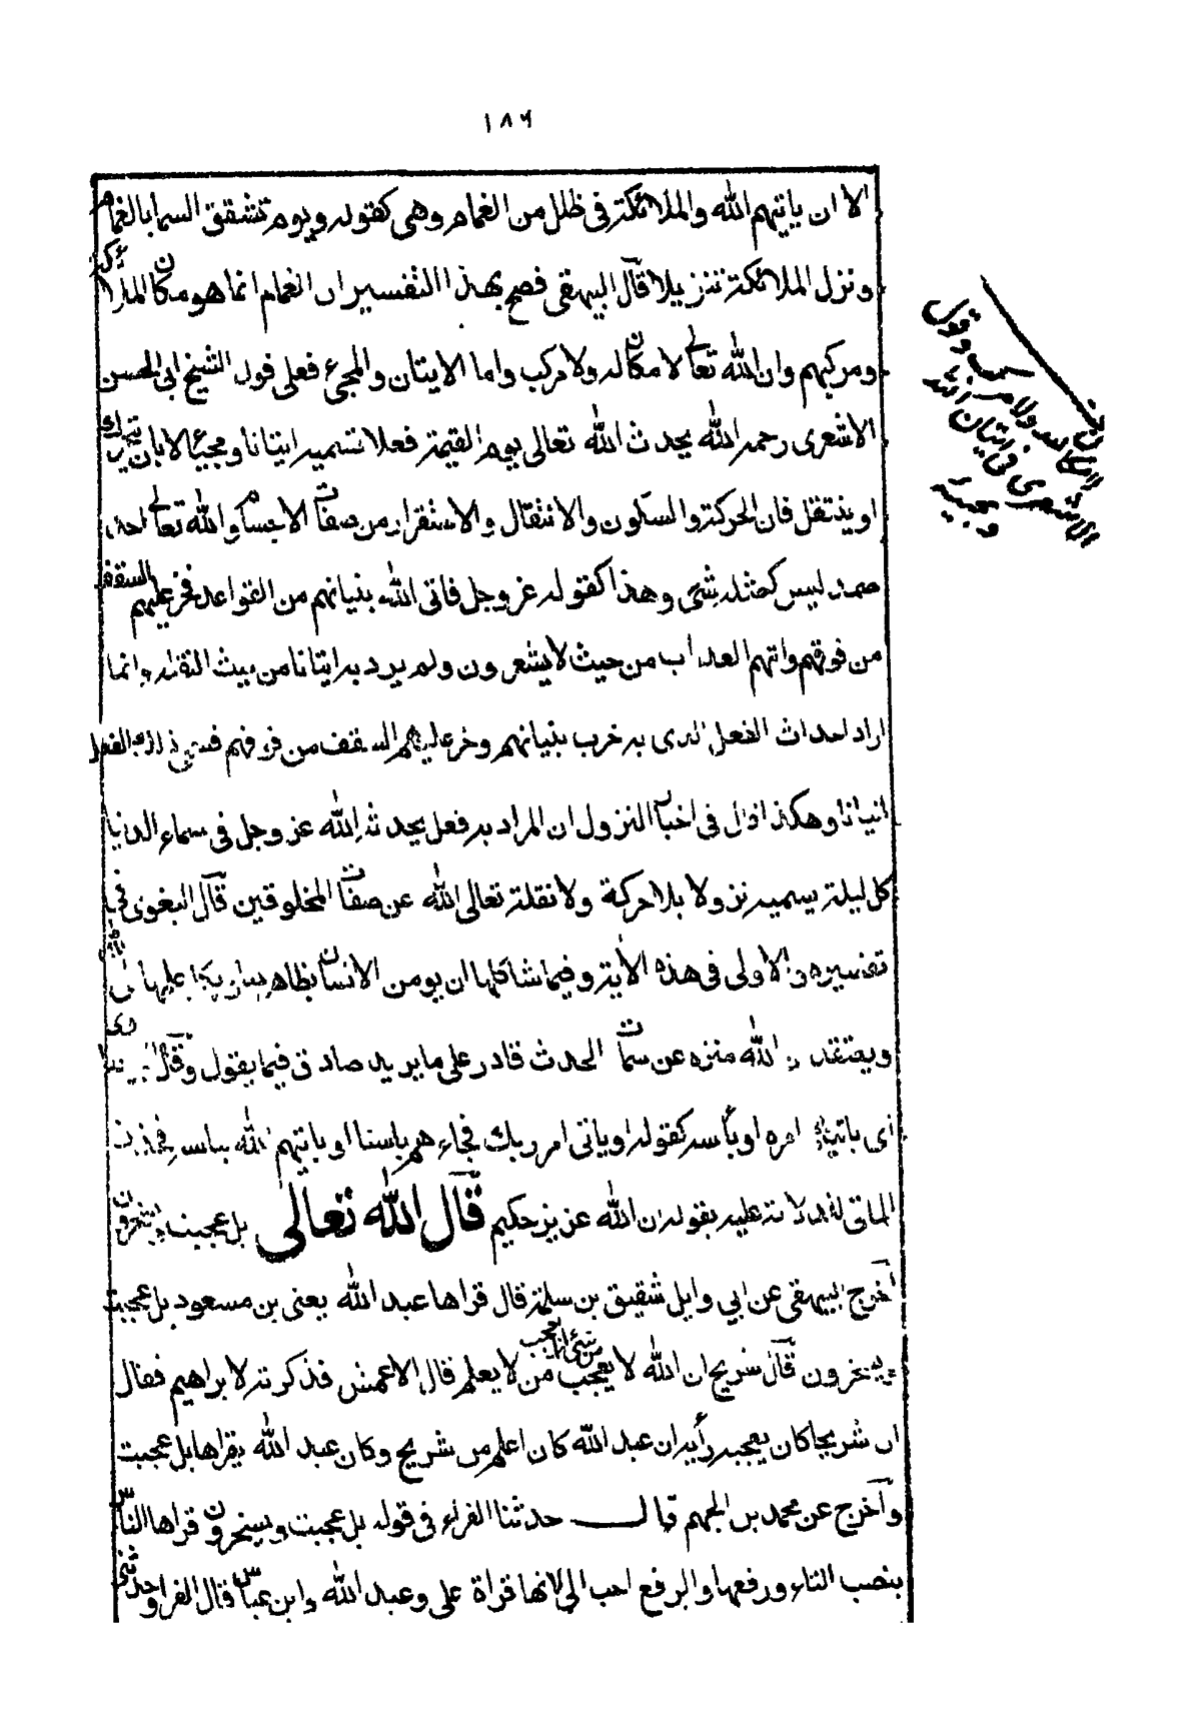 ١٨٦
الا ان ياتيهم الله والملائكة في ظلل من الغمام وهي كقوله ويوم تشقق السما بالغمام
ونزل الملائكة تنزيلا قال البيهقى فصح بهذا التفسير ان الغمام انما هو مكان الملائكة
ومركبهم وان الله تعالى لا مكان له ولا مركب واما الايتان والمجىء فعلى قول الشيخ ابى الحسن
الاشعرى رحمه الله يحدث الله تعالى يوم القيمة فعلا تسميه ايتانا ومجيئا لا بان يتحرك
او ينتقل فان الحركة والسكون والانتقال والاستقرار من صفات الاجسام والله تعالى احد
صمد ليس كمثله شى وهذا كقوله عز وجل فاتى الله بنيانهم من القواعد فخر عليهم السقف
من فوقهم واتهم العذاب من حيث لا يشعرون ولم يرد به ايتانا من حيث النقلة وانما
اراد احداث الفعل الذى به خرب بنيانهم وخر عليهم السقف من فوقهم فسمى ذلك الفعل
اتيانا وهكذا قال فى اخبار النزول ان المراد به فعل يحدثه الله عز وجل فى سماء الدنيا
كل ليلة يسميه نزولا بلا حركة ولا نقلة تعالى الله عن صفات المخلوقين قال البغوى فى
تفسيره والاولى فى هذه الاية وفيما شاكلها ان يومن الانسان بظاهرها ويكل علمها الى
ويعتقد ان الله منزه عن سمات الحدث قادر على ما يريد صادق فيما يقول وقال
اى ياتيهم امره او بأسه كقوله او ياتى امر ربك فجاءهم باسنا او ياتيهم الله بباسه فحذف
الماتى به لدلالة عليه بقوله ان الله عزيز حكيم قال الله تعالى بل عجبت ويسخرون
اخرج البيهقى عن ابي وايل شقيق بن سلمة قال قراها عبد الله يعنى بن مسعود بل عجبت
ويسخرون قال شريح ان الله لا يعجب من شىء انما يعجب من لا يعلم قال الاعمش فذكرته لابراهيم فقال
ان شريحا كان يعجبه رأيه ان عبد الله كان اعلم من شريح وكان عبد الله يقراها بل عجبت
واخرج عن محمد بن الجهم قال حدثنا الفراء فى قوله بل عجبت ويسخرون قراها الناس
بنصب التاء ورفعها والرفع احب الي لانها قراة على وعبد الله وابن عباس قال الفرا وحدثنى
لا مكان له ولا مركب وقول
الاشعرى فى اتيان الله
ومجيئه